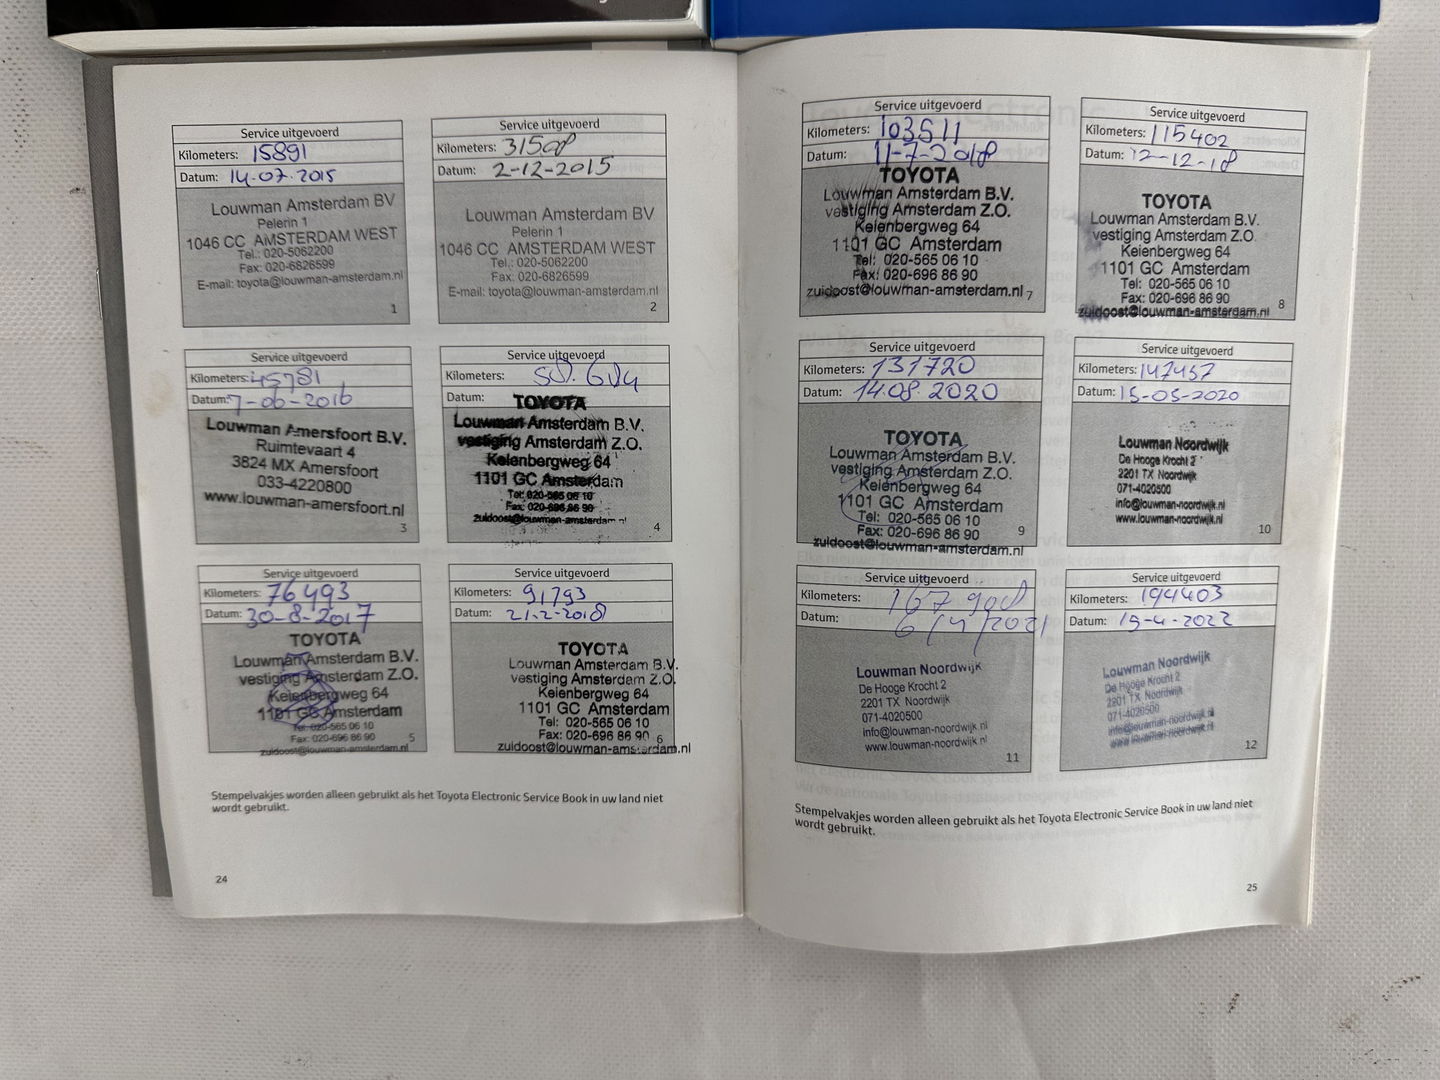 Service uitgevoerd
Kilometers: 15891
Datum: 14-07-2015
Louwman Amsterdam BV
Pelerin 1
1046 CC AMSTERDAM WEST
Tel.: 020-5062200
Fax: 020-6826599
E-mail: toyota@louwman-amsterdam.nl
1
Service uitgevoerd
Kilometers: 31508
Datum: 2-12-2015
Louwman Amsterdam BV
Pelerin 1
1046 CC AMSTERDAM WEST
Tel.: 020-5062200
Fax: 020-6826599
E-mail: toyota@louwman-amsterdam.nl
2
Service uitgevoerd
Kilometers: 45781
Datum: 7-06-2016
Louwman Amersfoort B.V.
Ruimtevaart 4
3824 MX Amersfoort
033-4220800
www.louwman-amersfoort.nl
3
Service uitgevoerd
Kilometers:
Datum:
TOYOTA
Louwman Amsterdam B.V.
vestiging Amsterdam Z.O.
Keienbergweg 64
1101 GC Amsterdam
Tel: 020-565 06 10
Fax: 020-696 86 90
zuidoost@louwman-amsterdam.nl
4
Service uitgevoerd
Kilometers: 76493
Datum: 30-8-2017
TOYOTA
Louwman Amsterdam B.V.
vestiging Amsterdam Z.O.
Keienbergweg 64
1101 GC Amsterdam
Tel: 020-565 06 10
Fax: 020-696 86 90
zuidoost@louwman-amsterdam.nl
5
Service uitgevoerd
Kilometers: 91793
Datum: 21-2-2018
TOYOTA
Louwman Amsterdam B.V.
vestiging Amsterdam Z.O.
Keienbergweg 64
1101 GC Amsterdam
Tel: 020-565 06 10
Fax: 020-696 86 90
zuidoost@louwman-amsterdam.nl
6
Stempelvakjes worden alleen gebruikt als het Toyota Electronic Service Book in uw land niet
wordt gebruikt.
24
Service uitgevoerd
Kilometers: 103511
Datum: 11-7-2018
TOYOTA
Louwman Amsterdam B.V.
vestiging Amsterdam Z.O.
Keienbergweg 64
1101 GC Amsterdam
Tel: 020-565 06 10
Fax: 020-696 86 90
zuidoost@louwman-amsterdam.nl
7
Service uitgevoerd
Kilometers: 115402
Datum: 12-12-18
TOYOTA
Louwman Amsterdam B.V.
vestiging Amsterdam Z.O.
Keienbergweg 64
1101 GC Amsterdam
Tel: 020-565 06 10
Fax: 020-696 86 90
zuidoost@louwman-amsterdam.nl
8
Service uitgevoerd
Kilometers: 131720
Datum: 14.08.2020
TOYOTA
Louwman Amsterdam B.V.
vestiging Amsterdam Z.O.
Keienbergweg 64
1101 GC Amsterdam
Tel: 020-565 06 10
Fax: 020-696 86 90
zuidoost@louwman-amsterdam.nl
9
Service uitgevoerd
Kilometers: 147457
Datum: 15-05-2020
Louwman Noordwijk
De Hooge Krocht 2
2201 TX Noordwijk
071-4020500
info@louwman-noordwijk.nl
www.louwman-noordwijk.nl
10
Service uitgevoerd
Kilometers: 167908
Datum: 6/4/2021
Louwman Noordwijk
De Hooge Krocht 2
2201 TX Noordwijk
071-4020500
info@louwman-noordwijk.nl
www.louwman-noordwijk.nl
11
Service uitgevoerd
Kilometers: 194403
Datum: 19-4-2022
Louwman Noordwijk
De Hooge Krocht 2
2201 TX Noordwijk
071-4020500
info@louwman-noordwijk.nl
www.louwman-noordwijk.nl
12
Stempelvakjes worden alleen gebruikt als het Toyota Electronic Service Book in uw land niet
wordt gebruikt.
25